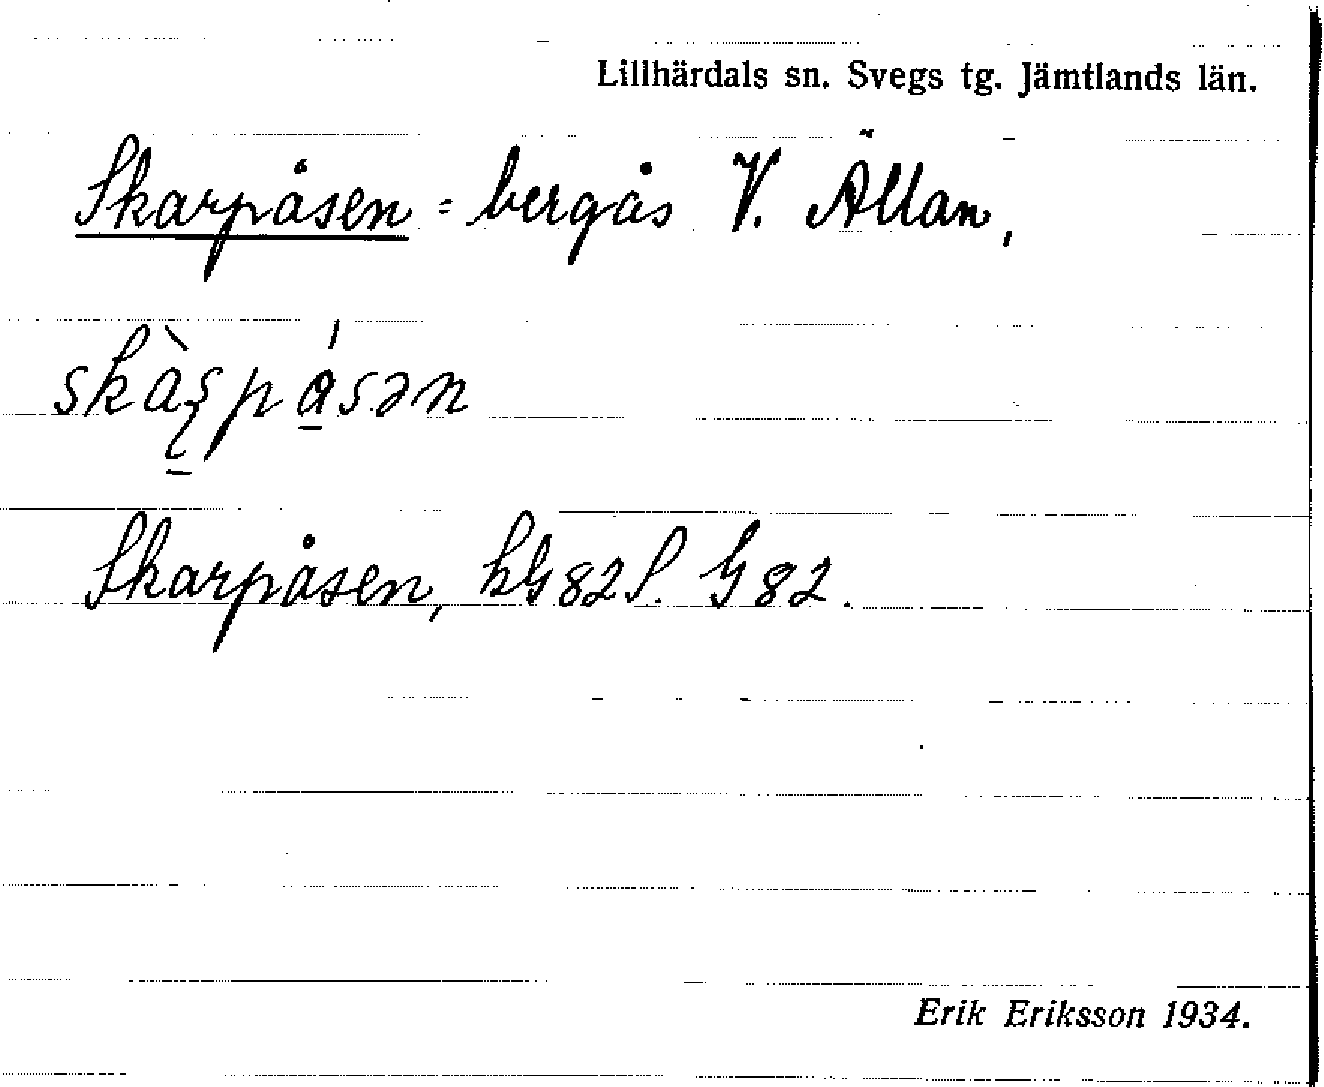 Lillhärdals sn. Svegs tg. Jämtlands län.
Skarpåsen = bergås V. Ällan,
Skarpåsen, hG82S. G82.
Erik Eriksson 1934.